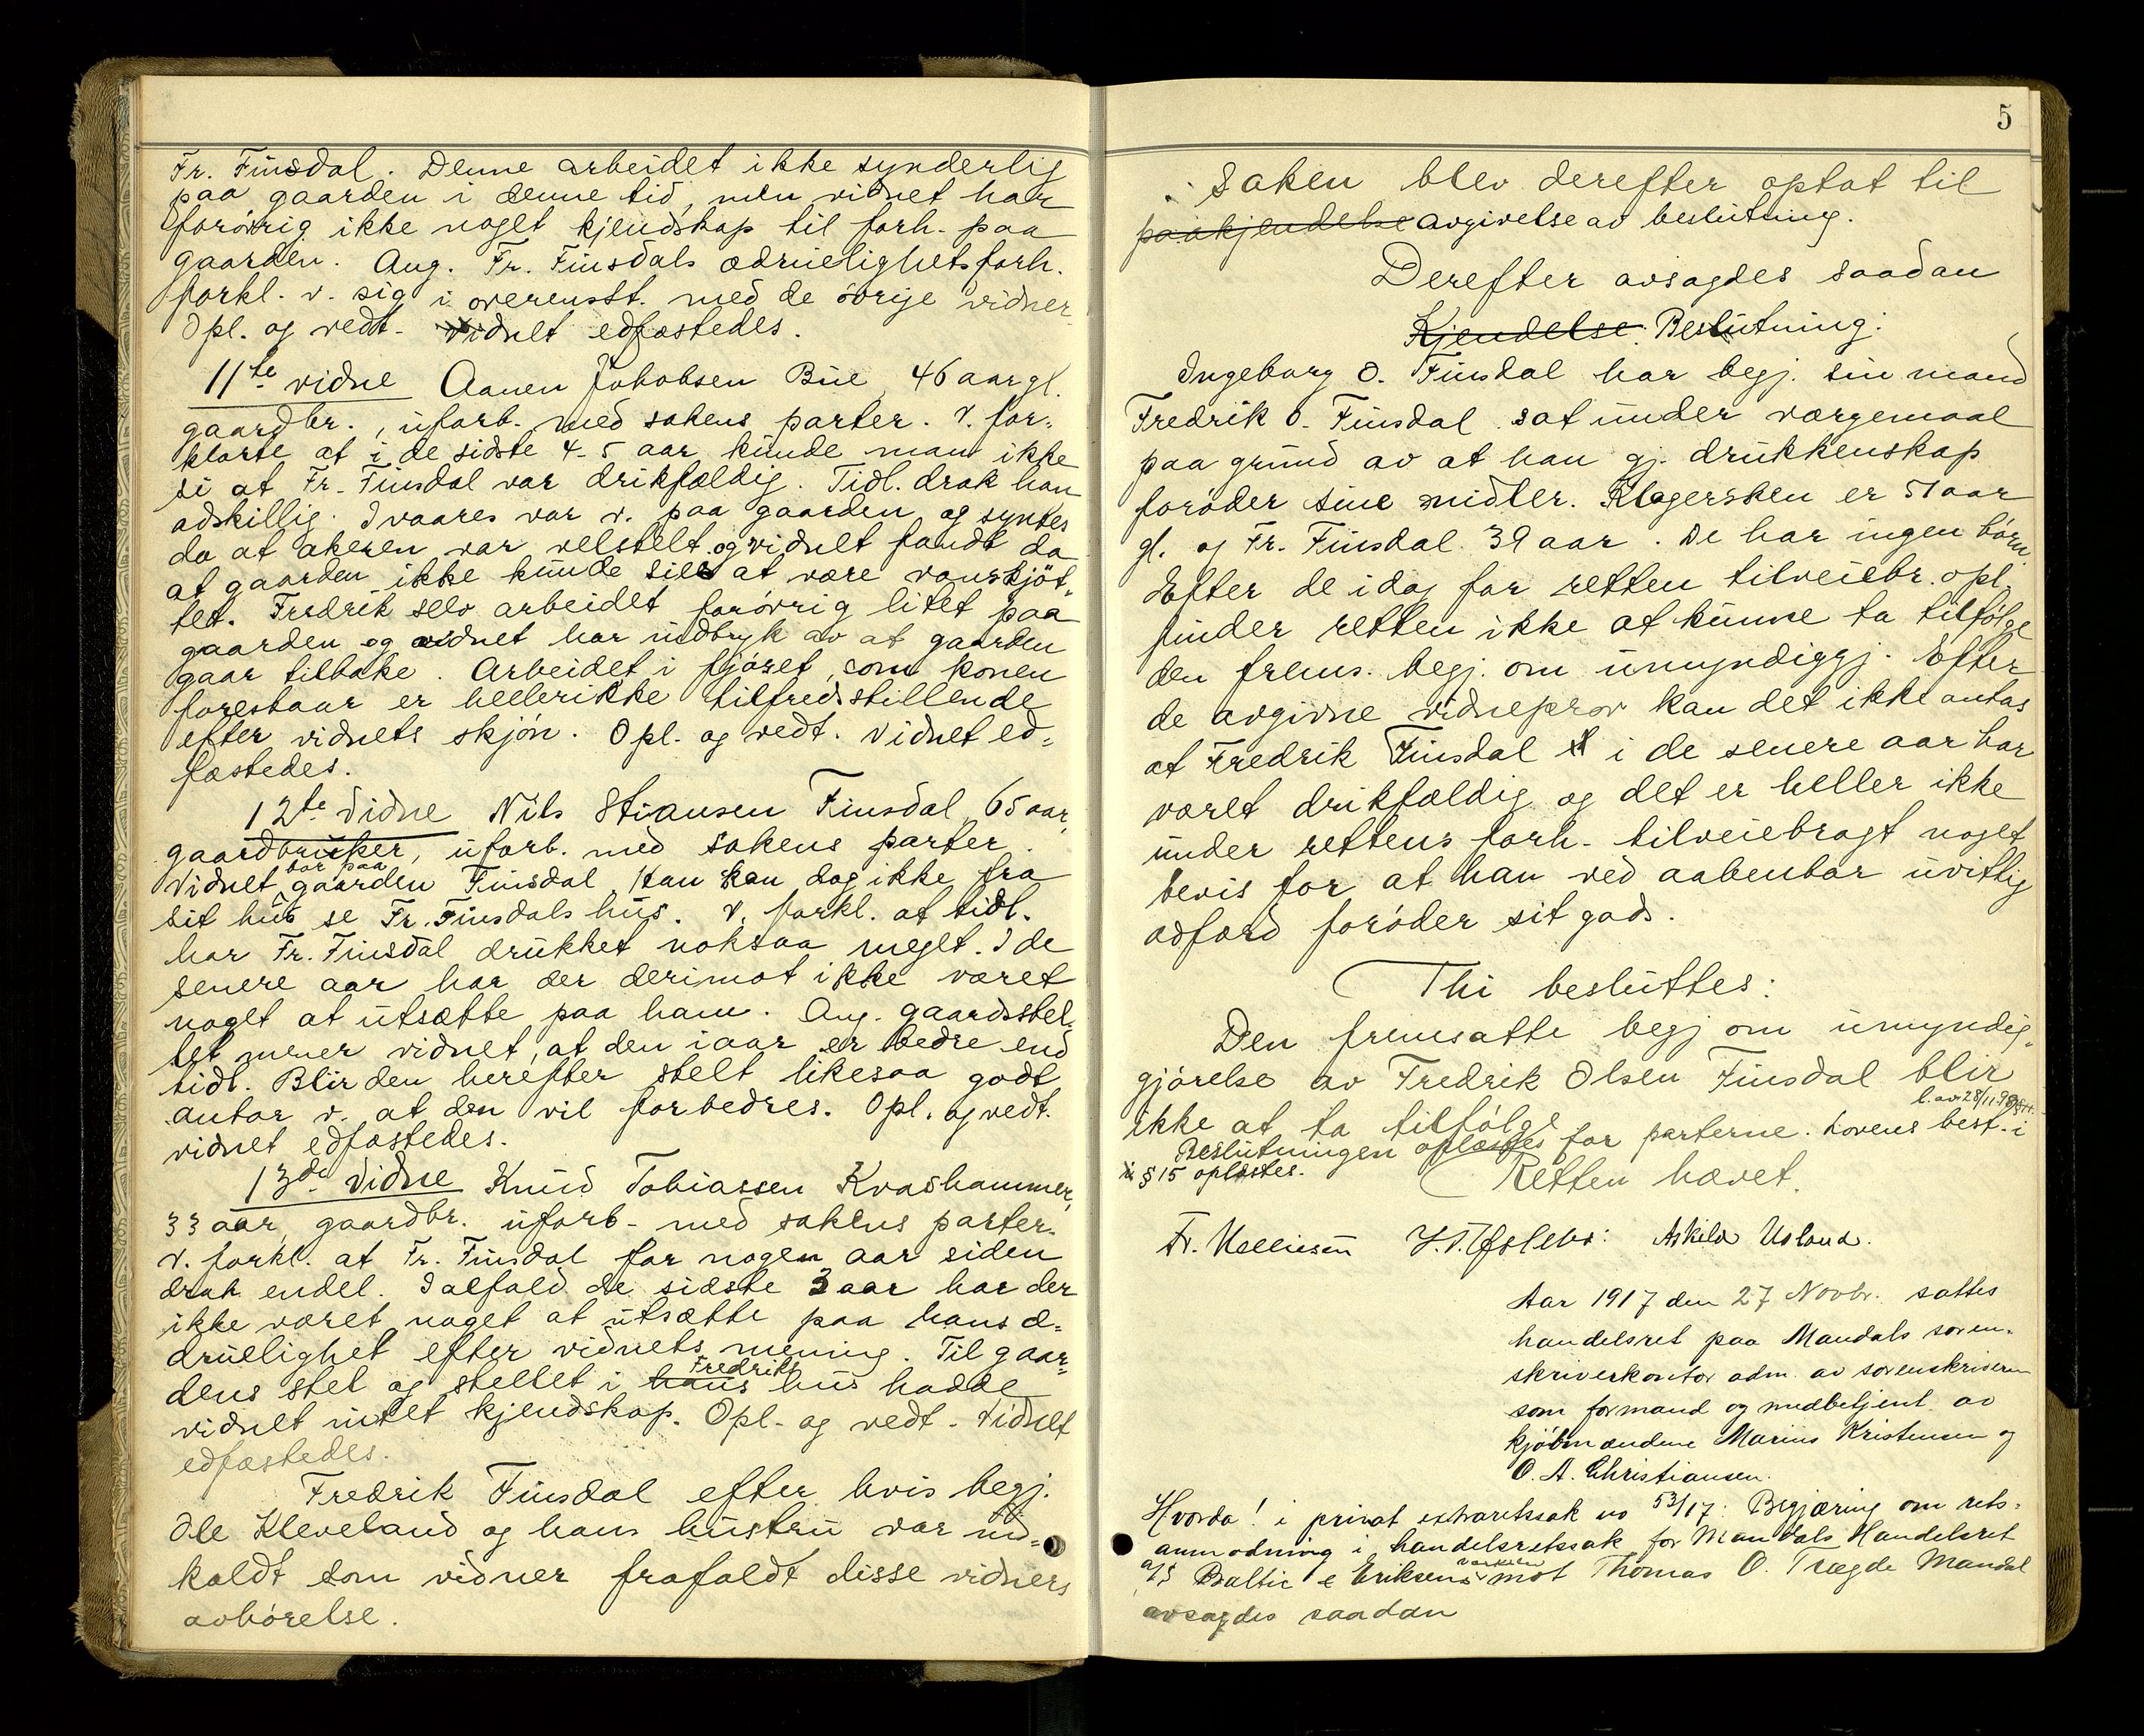 Fr. Finsdal. Denne arbeidet ikke synderlig
paa gaarden i denne tid, men vidnet har
forøvrig ikke noget kjendskap til forh. paa
gaarden. Ang. Fr. Finsdals ædruelighetsforh.
forkl. v. sig i overensst. med de øvrige vidner
Opl. og vedt. Vidnet edfæstedes.
11te vidne Aanen Jakobsen Bue, 46 aar gl.
gaardbr., uforb. med sakens parter. V. for-
klarte at i de sidste 4-5 aar kunde man ikke
si at Fr. Finsdal var drikfældig. Tidl. drak han
adskillig. I vaares var v. paa gaarden og syntes
da at akeren var velstelt og vidnet fandt da
at gaarden ikke kunde sies at være vanskjøt-
tet. Fredrik selv arbeidet forøvrig litet paa
gaarden og vidnet har indtryk av at gaarden
gaar tilbake. Arbeidet i fjøset, som konen
forestaar er hellerikke tilfredsstillende
efter vidnets skjøn. Opl. og vedt. Vidnet ed-
fæstedes.
12te Vidne Nils Stiansen Finsdal, 65 aar,
gaardbruker, uforb. med sakens parter.
Vidnet bor paa gaarden Finsdal. Han kan dog ikke fra
sit hus se Fr. Finsdals hus. V. forkl. at tidl.
har Fr. Finsdal drukket noksaa meget. I de
senere aar har der derimot ikke været
noget at utsætte paa ham. Ang. gaardsstel-
let mener vidnet, at den iaar er bedre end
tidl. Blir den herefter stelt likesaa godt
antar v. at den vil forbedres. Opl. og vedt.
vidnet edfæstedes.
13de Vidne Knud Tobiassen Kvashammer,
33 aar, gaardbr. uforb. med sakens parter.
V. forkl. at Fr. Finsdal for nogen aar siden
drak endel. Ialfald de sidste 3 aar har der
ikke været noget at utsætte paa hans æ-
druelighet efter vidnets mening. Til gaar-
dens stel og stellet i hans Fredriks hus hadde
vidnet intet kjendskap. Opl. og vedt. Vidnet
edfæstedes.
Fredrik Finsdal efter hvis begj.
Ole Kleveland og hans hustru var ind-
kaldt som vidner frafaldt disse vidners
avhørelse.
5
Saken blev derefter optat til
paakjendelse avgivelse av beslutning.
Derefter avsagdes saadan
Kjendelse: Beslutning:
Ingeborg O. Finsdal har begj. sin mand
Fredrik O. Finsdal sat under værgemaal
paa grund av at han gj. drukkenskap
forøder sine midler. Klagersken er 51 aar
gl. og Fr. Finsdal 39 aar. De har ingen børn.
Efter de idag for retten tilveiebr. opl.
finder retten ikke at kunne ta tilfølge
den frems. begj. om umyndiggj. Efter
de avgivne vidneprov kan det ikke antas
at Fredrik Finsdal i de senere aar har
været drikfældig og det er heller ikke
under rettens forh. tilveiebragt noget
bevis for at han ved aabenbar uvittig
adfærd forøder sit gods.
Thi besluttes:
Den fremsatte begj om umyndig-
gjørelse av Fredrik Olsen Finsdal blir
ikke at ta tilfølge
l. av 28/11.98
Beslutningen oplæstes for parterne. Lovens best. i
§ 15 oplæstes.
Retten hævet.
Fr. Helliesen Askild Usland.
Aar 1917 den 27 Novbr. sattes
handelsret paa Mandals soren-
skriverkontor adm. av sorenskriveren
som formand og medbetjent av
kjøbmændene Marius Kristensen og
O. A. Christiansen.
Hvorda! i privat extraretssak no 53/17: Begjæring om rets-
anmodning i handelsretssak for Mandals Handelsret
A/S Baltic e Eriksens mot Thomas O. Trægde Mandal
avsagdes saadan